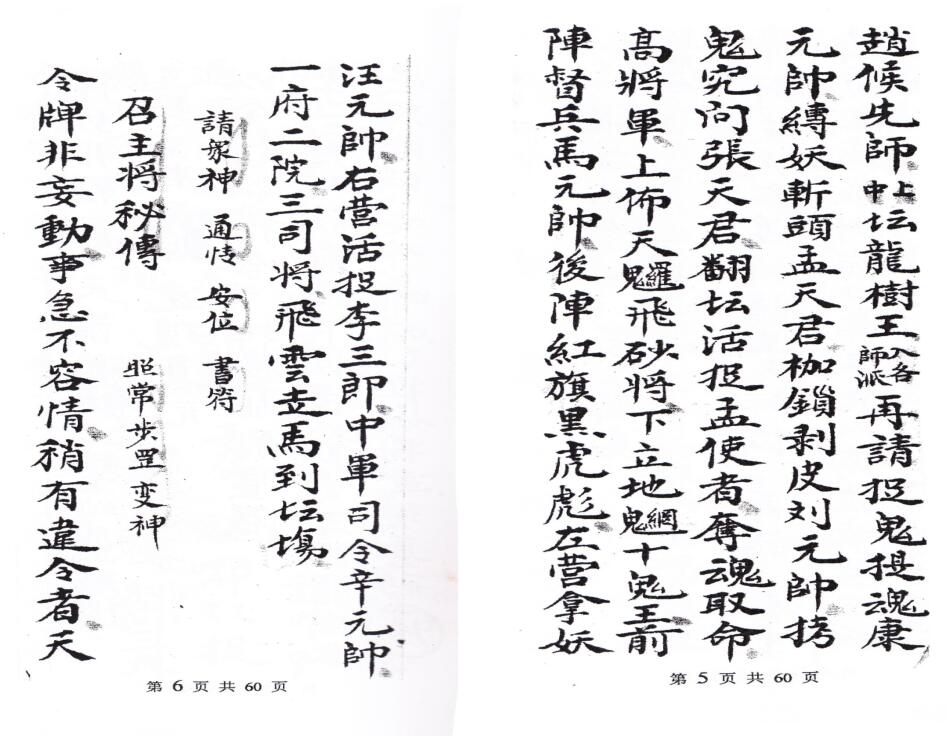 趙候先師中坛龍樹王入各師派再請捉鬼提魂康
元帥縛妖斬頭孟天君枷鎖剥皮刘元帥拷
鬼究问張天君翻坛活捉孟使者奪魂取命
高將軍上佈天魔飛砂將下立地魍十鬼王前
陣督兵馬元帥後陣紅旗黑虎彪左营拿妖
第 5 页 共 60 页
汪元帥右营活捉李三郎中軍司令辛元帥
一府二院三司将飛雲走馬到坛場
請眾神 通情 安位 書符
召主将秘傳 照常步罡变神
令牌非妄動事急不容情稍有違令者天
第 6 页 共 60 页